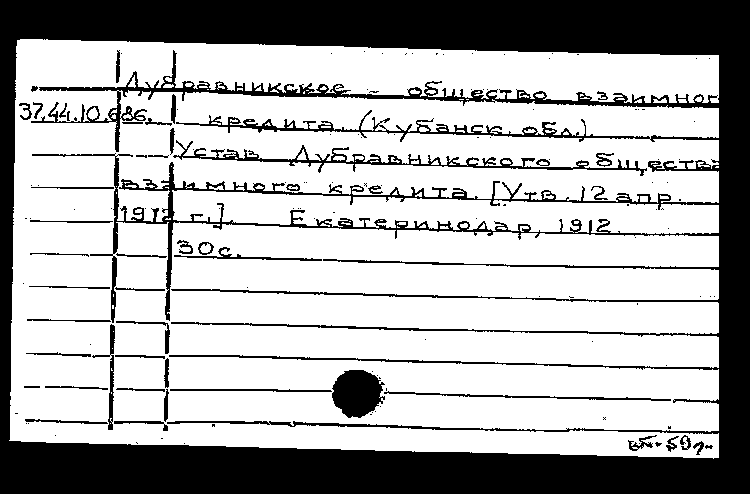 Дубравникское - общество взаимног
37.44.10.686. кредита. (Кубанск. обл.).
Устав Дубравникского общества
взаимного кредита. [Утв. 12 апр.
1912 г.]. Екатеринодар, 1912.
30с.